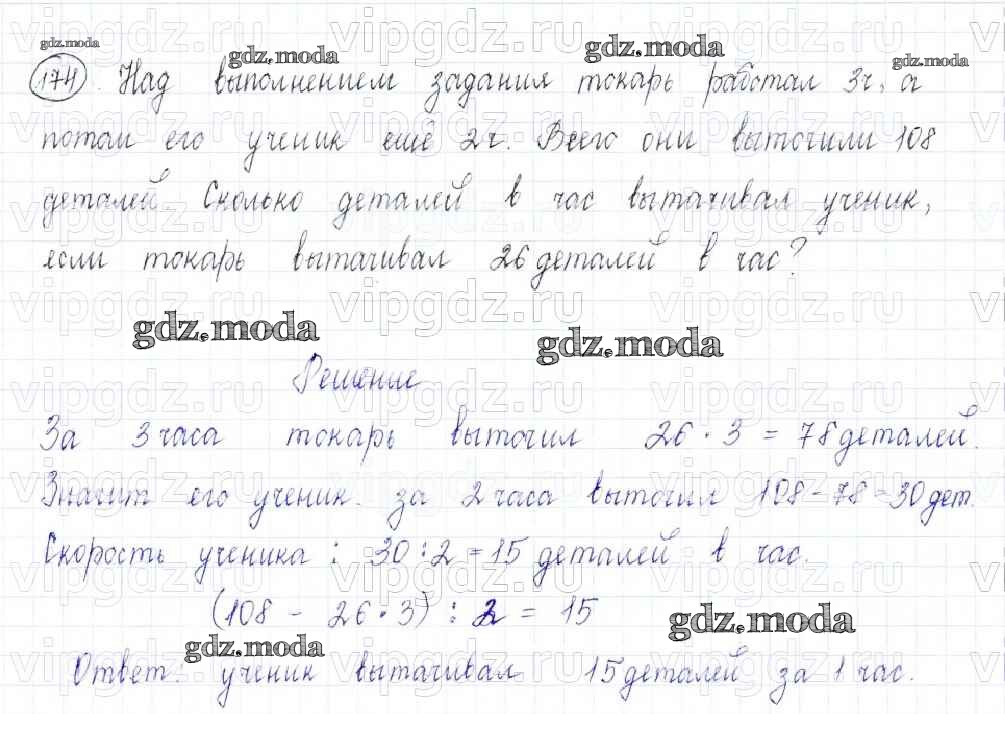 gdz.moda
gdz.moda
gdz.moda
gdz.moda
174. Над выполнением задания токарь работал 3ч, а
потом его ученик ещё 2ч. Всего они выточили 108
деталей. Сколько деталей в час вытачивал ученик,
если токарь вытачивал 26 деталей в час?
gdz.moda
gdz.moda
Решение
За 3 часа токарь выточил 26 · 3 = 78 деталей.
Значит его ученик. за 2 часа выточил 108 - 78 = 30 дет.
Скорость ученика : 30 : 2 = 15 деталей в час.
(108 - 26 · 3) : 2 = 15
gdz.moda
gdz.moda
Ответ: ученик вытачивал 15 деталей за 1 час.